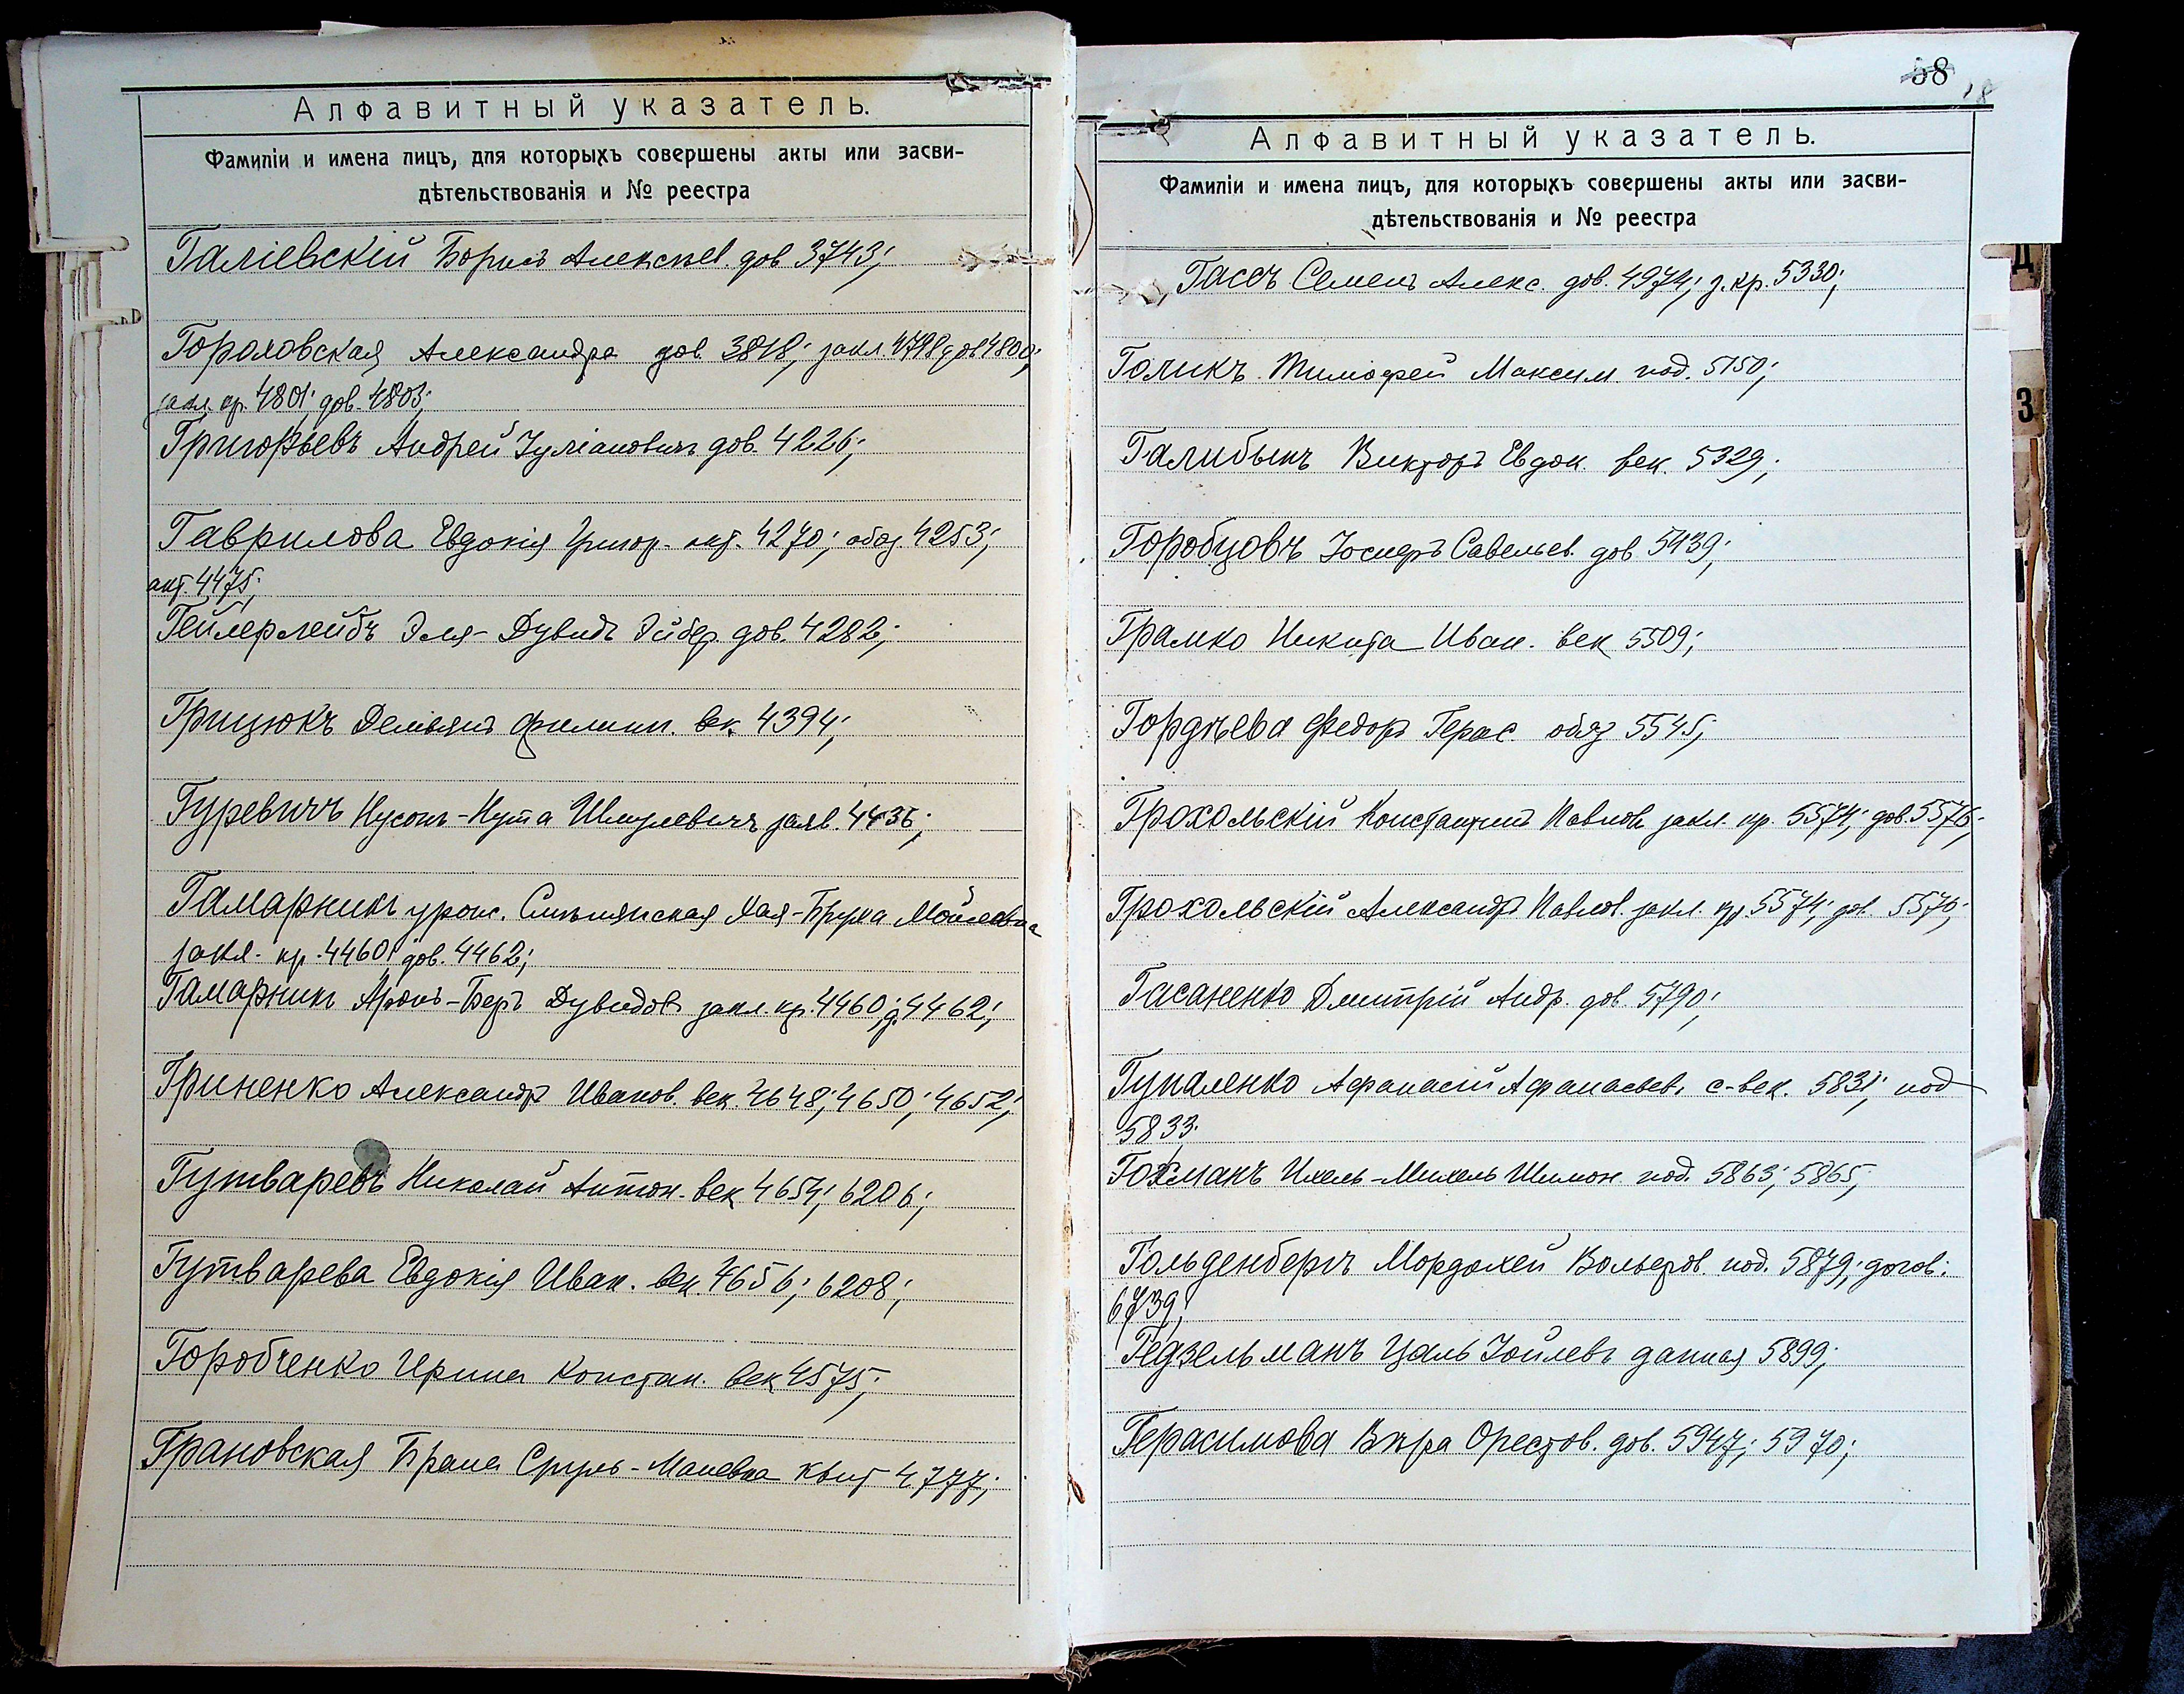 Алфавитный указатель.
Фамиліи и имена лицъ, для которыхъ совершены акты или засви-
дѣтельствованія и № реестра
Галіевскій Борисъ Алексѣев. дов 3743;
Гороловская Александра дов. 3818; закл. 4798 дов 4800;
закл. кр. 4801; дов. 4803;
Григорьевъ Андрей Іуліановичъ дов. 4226;
Гаврилова Евдокія Григор. акт. 4270; обяз. 4253;
акт. 4475;
Гейлерлейбъ Эля-Дувидъ дов. 4282;
Грицюкъ Демьянъ Филипп. век. 4394;
Гуревичъ Нусонъ-Нута Шмулевичъ заяв. 4436;
Гамарникъ урож. Хая-Бруха Мойсеевна
закл. кр. 4460; дов. 4462;
Гамарникъ Аронъ-Беръ Дувидов. закл. кр. 4460; д. 4462;
Гриненко Александръ Иванов. век. 4648; 4650; 4652;
Гутваревъ Николай Антон. век 4654; 6206;
Гутварева Евдокія Иван. век. 4656; 6208;
Горобченко Ирина Констан. век 4575;
Грановская Брана Сруль-Маневна квит 4777;
58
18
Алфавитный указатель.
Фамиліи и имена лицъ, для которыхъ совершены акты или засви-
дѣтельствованія и № реестра
Гассъ Семенъ Алекс. дов. 4974; з. кр. 5330;
Голикъ Тимофей Максим. под. 5150;
Галибынъ Викторъ Евдок. век. 5329;
Горобцовъ Іосифъ Савельев. дов. 5439;
Грамко Никита Иван. век 5509;
Гордѣева Федоръ Герас. обяз 5545;
Грохольскій Константинъ Павлов. закл. кр. 5574; дов. 5576;
Грохольскій Александръ Павлов. закл. кр. 5574; дов. 5570;
Гасаненко Дмитрій Андр. дов. 5790;
Гупаленко Афанасій Афанасьев. с-век. 5831; под
5833;
Гохманъ Ихель-Михель Шимон. под. 5863; 5865;
Гольденбергъ Мордохей Вольфов. под. 5879; догов.
6739;
Гедзельманъ Цаль Іойлевъ данная 5899;
Герасимова Вѣра Орестов. дов. 5947; 5970;